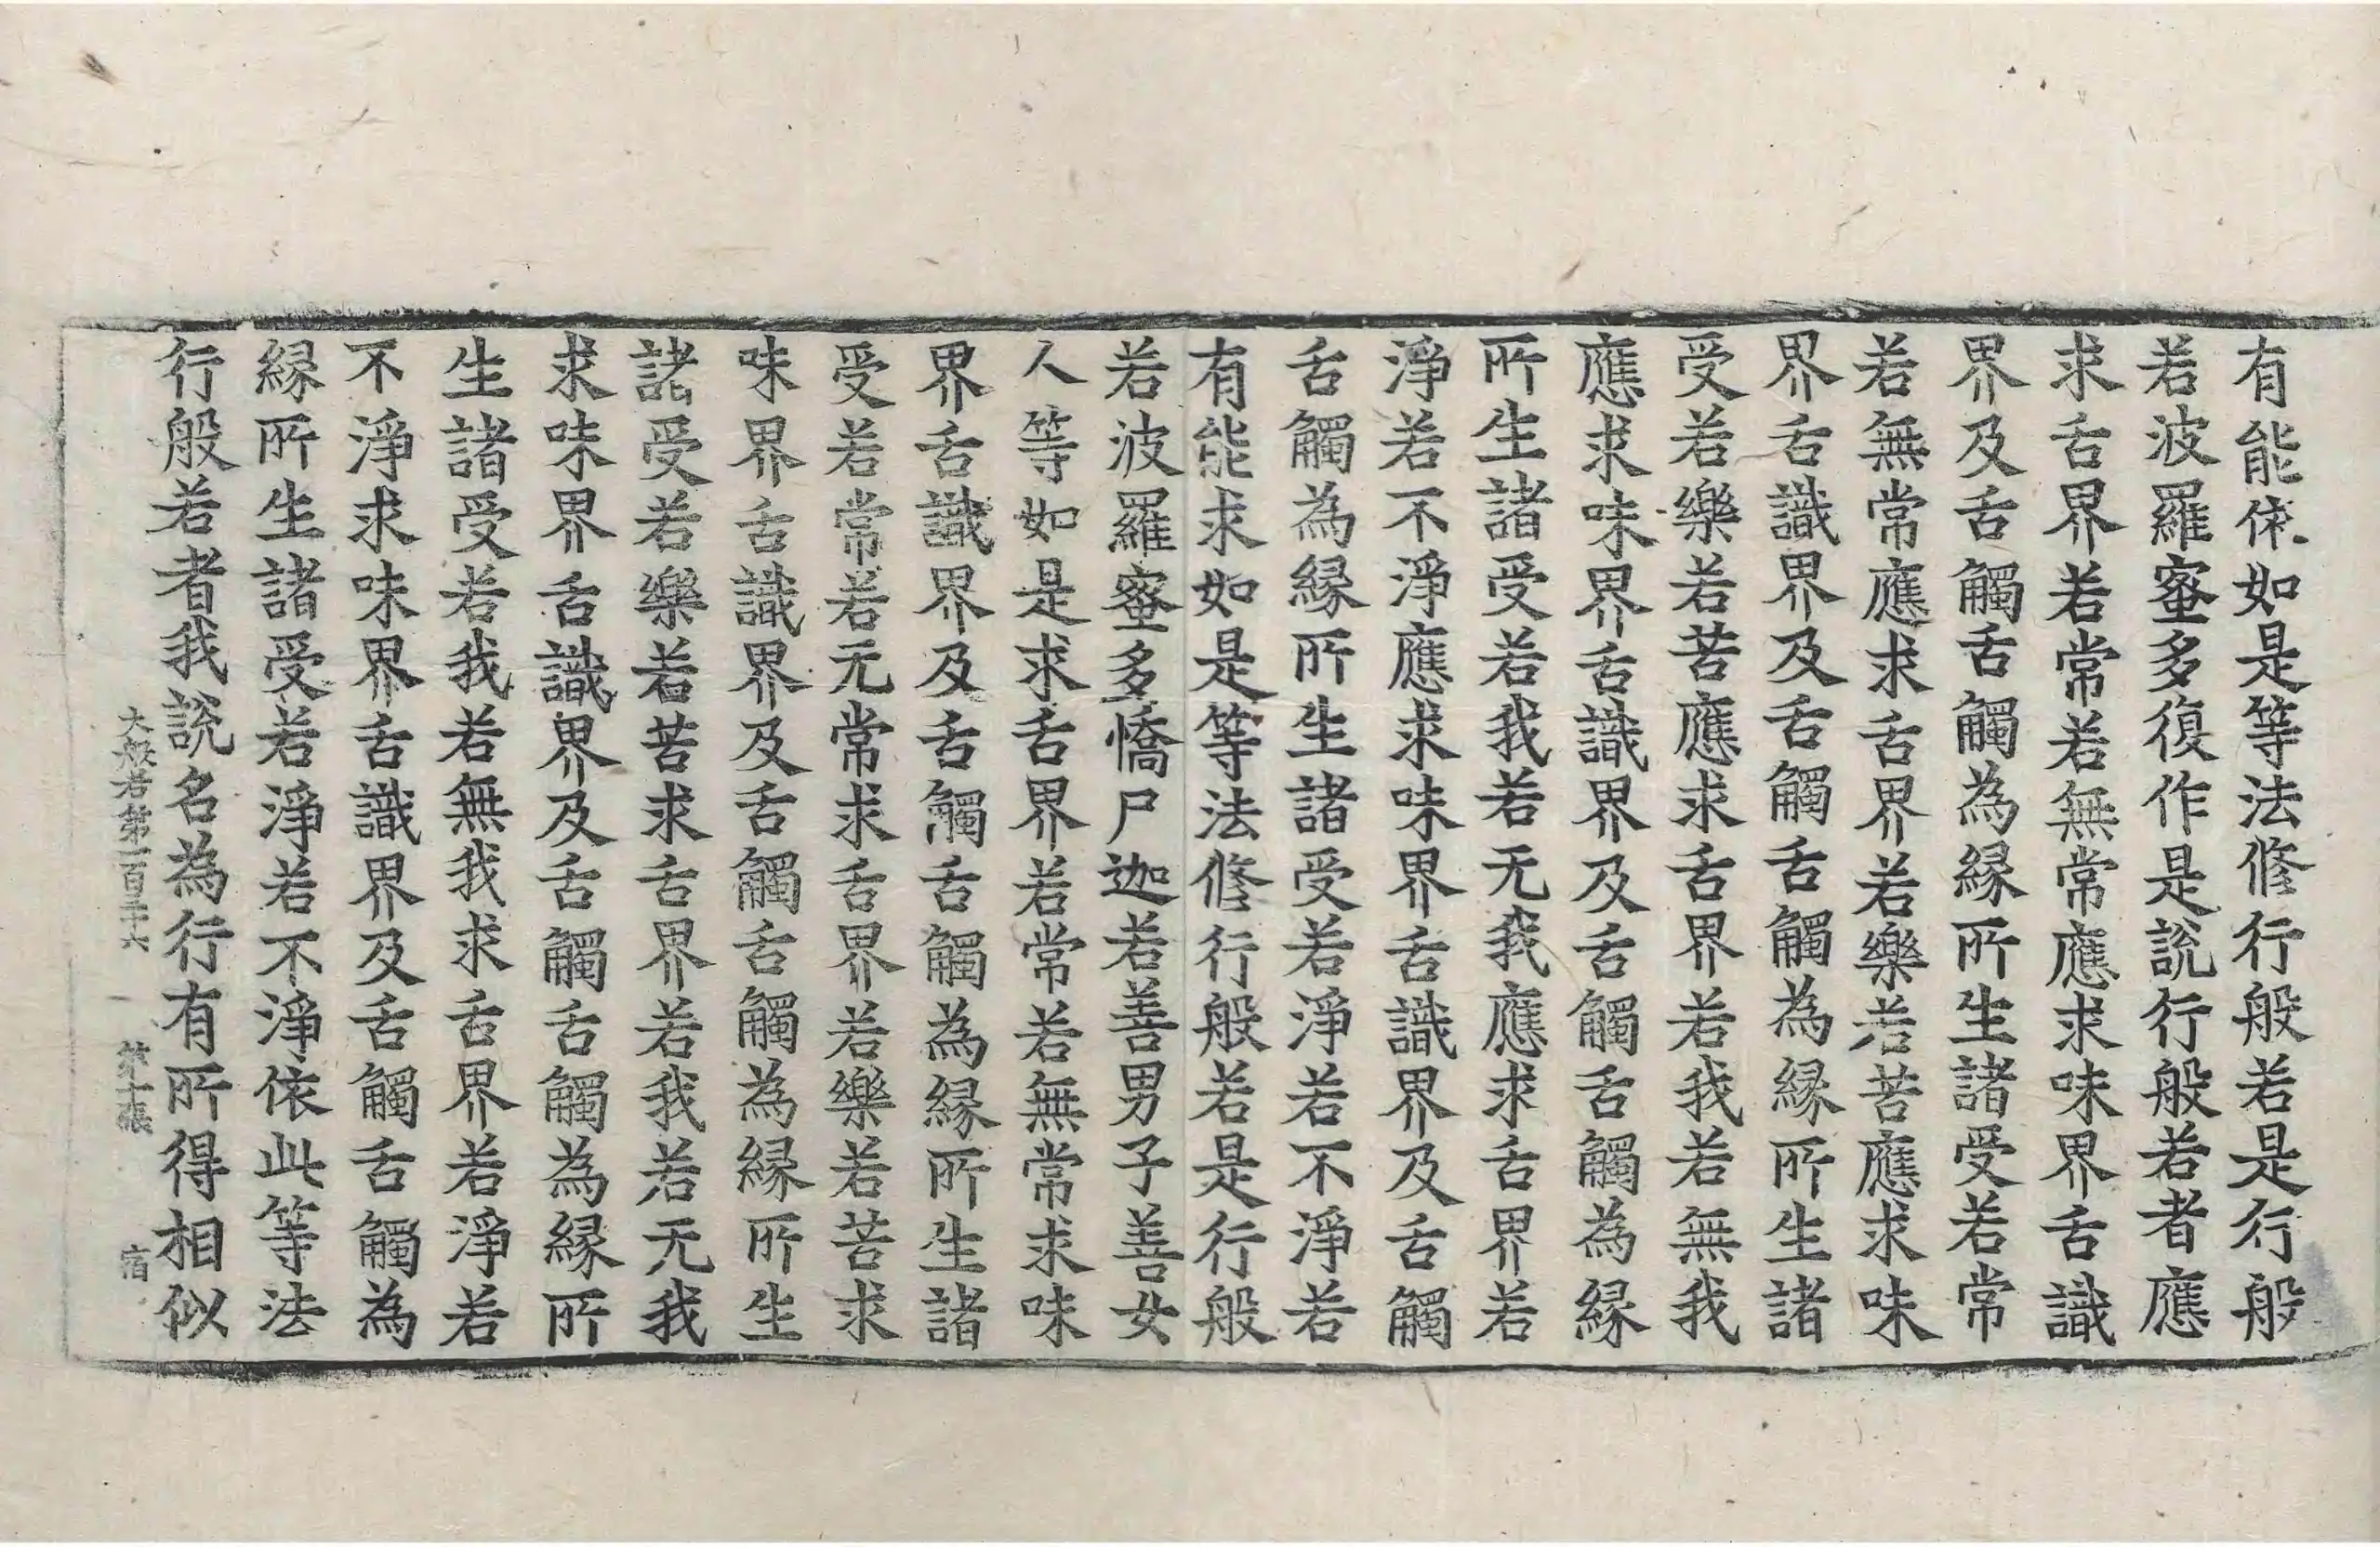 有能依如是等法修行般若是行般
若波羅蜜多復作是說行般若者應
求舌界若常若無常應求味界舌識
界及舌觸舌觸為縁所生諸受若常
若無常應求舌界若樂若苦應求味
界舌識界及舌觸舌觸為縁所生諸
受若樂若苦應求舌界若我若無我
應求味界舌識界及舌觸舌觸為縁
所生諸受若我若无我應求舌界若
淨若不淨應求味界舌識界及舌觸
舌觸為縁所生諸受若淨若不淨若
有能求如是等法修行般若是行般
若波羅蜜多憍尸迦若善男子善女
人等如是求舌界若常若無常求味
界舌識界及舌觸舌觸為縁所生諸
受若常若无常求舌界若樂若苦求
味界舌識界及舌觸舌觸為縁所生
諸受若樂若苦求舌界若我若无我
求味界舌識界及舌觸舌觸為縁所
生諸受若我若無我求舌界若淨若
不淨求味界舌識界及舌觸舌觸為
縁所生諸受若淨若不淨依此等法
行般若者我說名為行有所得相似
大般若第一百三十六 第 張 宿